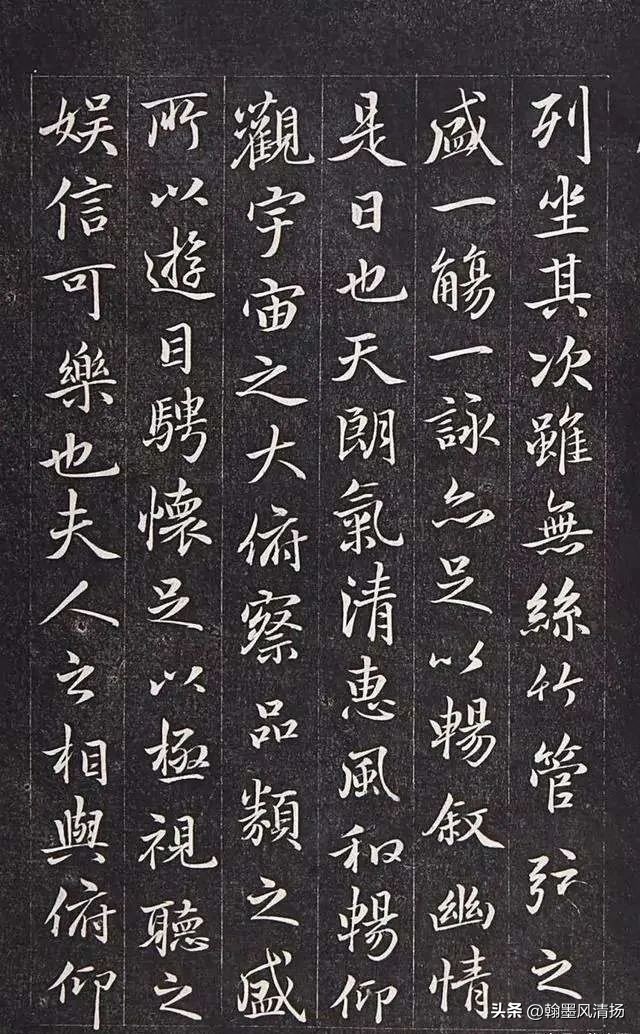 列坐其次雖無絲竹管弦之
盛一觴一詠亦足以暢叙幽情
是日也天朗氣清惠風和暢仰
觀宇宙之大俯察品類之盛
所以遊目騁懷足以極視聽之
娱信可樂也夫人之相與俯仰
头条@翰墨风清扬